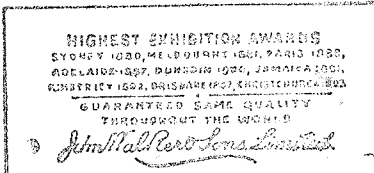 HIGHEST EXHIBITION AWARDS
SYDNEY 1880, MELBOURNE 1881, PARIS 1889,
ADELAIDE 1887, DUNEDIN 1890, JAMAICA 1891,
BRISBANE 1897, CHRISTCHURCH
GUARANTEED SAME QUALITY
THROUGHOUT THE WORLD
John Walker & Sons Limited